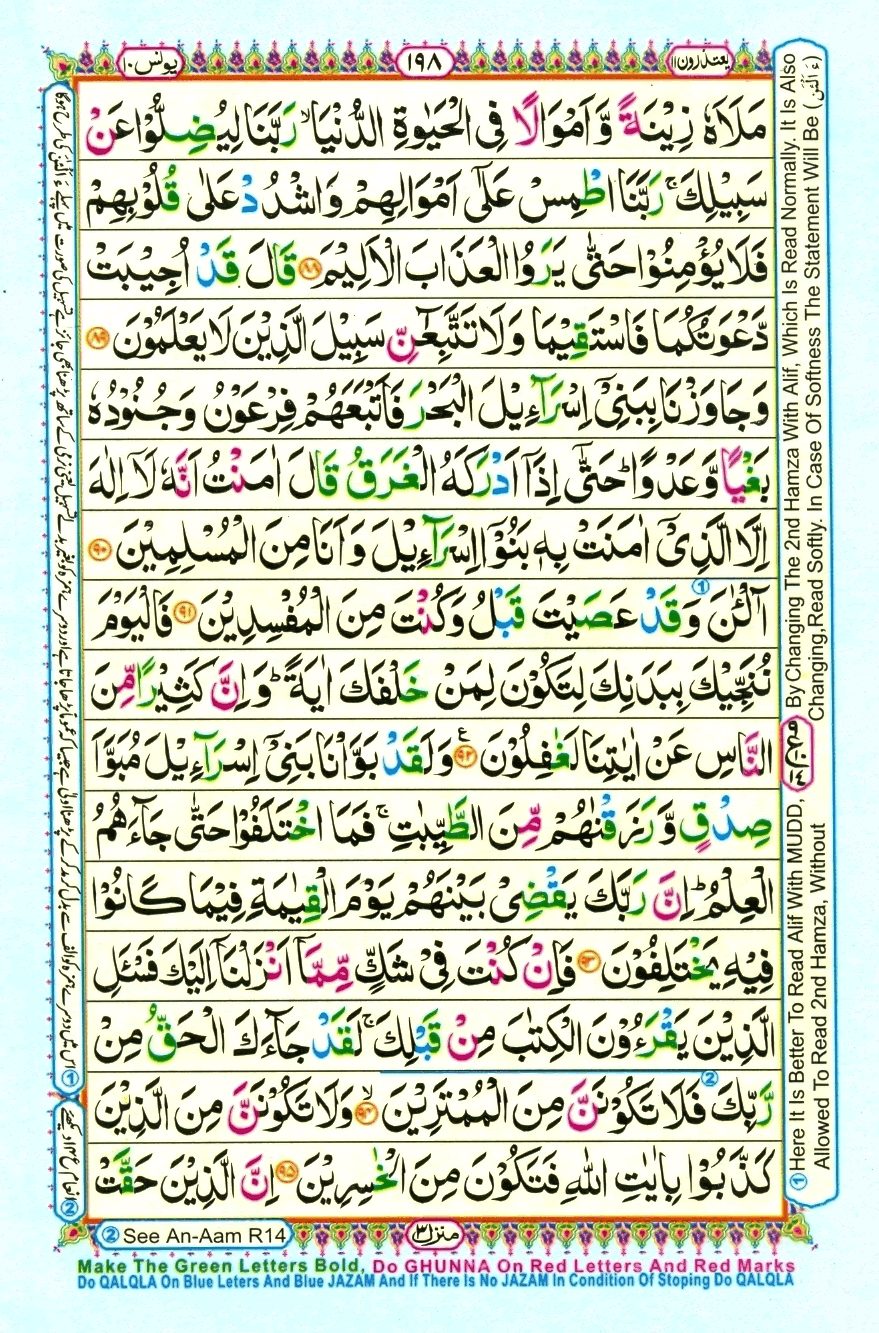 یونس ۱۰
۱۹۸
یعتذرون ۱۱
مَلَاَهٗ زِیْنَةً وَّ اَمْوَالًا فِی الْحَیٰوةِ الدُّنْیَا ۙ رَبَّنَا لِیُضِلُّوْا عَنْ
سَبِیْلِكَ ۚ رَبَّنَا اطْمِسْ عَلٰۤی اَمْوَالِهِمْ وَ اشْدُدْ عَلٰی قُلُوْبِهِمْ
فَلَا یُؤْمِنُوْا حَتّٰی یَرَوُا الْعَذَابَ الْاَلِیْمَ ﴿۸۸﴾ قَالَ قَدْ اُجِیْبَتْ
دَّعْوَتُكُمَا فَاسْتَقِیْمَا وَ لَا تَتَّبِعٰٓنِّ سَبِیْلَ الَّذِیْنَ لَا یَعْلَمُوْنَ ﴿۸۹﴾
وَ جَاوَزْنَا بِبَنِیْۤ اِسْرَآءِیْلَ الْبَحْرَ فَاَتْبَعَهُمْ فِرْعَوْنُ وَ جُنُوْدُهٗ
بَغْیًا وَّ عَدْوًا ؕ حَتّٰۤی اِذَاۤ اَدْرَكَهُ الْغَرَقُ قَالَ اٰمَنْتُ اَنَّهٗ لَاۤ اِلٰهَ
اِلَّا الَّذِیْۤ اٰمَنَتْ بِهٖ بَنُوْۤا اِسْرَآءِیْلَ وَ اَنَا مِنَ الْمُسْلِمِیْنَ ﴿۹۰﴾
آٰلْـٰٔنَ وَ قَدْ عَصَیْتَ قَبْلُ وَ كُنْتَ مِنَ الْمُفْسِدِیْنَ ﴿۹۱﴾ فَالْیَوْمَ
نُنَجِّیْكَ بِبَدَنِكَ لِتَكُوْنَ لِمَنْ خَلْفَكَ اٰیَةً ؕ وَ اِنَّ كَثِیْرًا مِّنَ
النَّاسِ عَنْ اٰیٰتِنَا لَغٰفِلُوْنَ ﴿۹۲﴾ ع وَ لَقَدْ بَوَّاْنَا بَنِیْۤ اِسْرَآءِیْلَ مُبَوَّاَ
صِدْقٍ وَّ رَزَقْنٰهُمْ مِّنَ الطَّیِّبٰتِ ۚ فَمَا اخْتَلَفُوْا حَتّٰی جَآءَهُمُ
الْعِلْمُ ؕ اِنَّ رَبَّكَ یَقْضِیْ بَیْنَهُمْ یَوْمَ الْقِیٰمَةِ فِیْمَا كَانُوْا
فِیْهِ یَخْتَلِفُوْنَ ﴿۹۳﴾ فَاِنْ كُنْتَ فِیْ شَكٍّ مِّمَّاۤ اَنْزَلْنَاۤ اِلَیْكَ فَسْـَٔلِ
الَّذِیْنَ یَقْرَءُوْنَ الْكِتٰبَ مِنْ قَبْلِكَ ۚ لَقَدْ جَآءَكَ الْحَقُّ مِنْ
رَّبِّكَ فَلَا تَكُوْنَنَّ مِنَ الْمُمْتَرِیْنَ ﴿۹۴﴾ ۙ وَ لَا تَكُوْنَنَّ مِنَ الَّذِیْنَ
كَذَّبُوْا بِاٰیٰتِ اللّٰهِ فَتَكُوْنَ مِنَ الْخٰسِرِیْنَ ﴿۹۵﴾ اِنَّ الَّذِیْنَ حَقَّتْ
① Here It Is Better To Read Alif With MUDD, By Changing The 2nd Hamza With Alif, Which Is Read Normally. It Is Also
Allowed To Read 2nd Hamza, Without Changing, Read Softly. In Case Of Softness The Statement Will Be (ءَ اَلْئٰنَ)
② See An-Aam R14
منزل ۳
Make The Green Letters Bold, Do GHUNNA On Red Letters And Red Marks
Do QALQLA On Blue Leters And Blue JAZAM And If There Is No JAZAM In Condition Of Stoping Do QALQLA